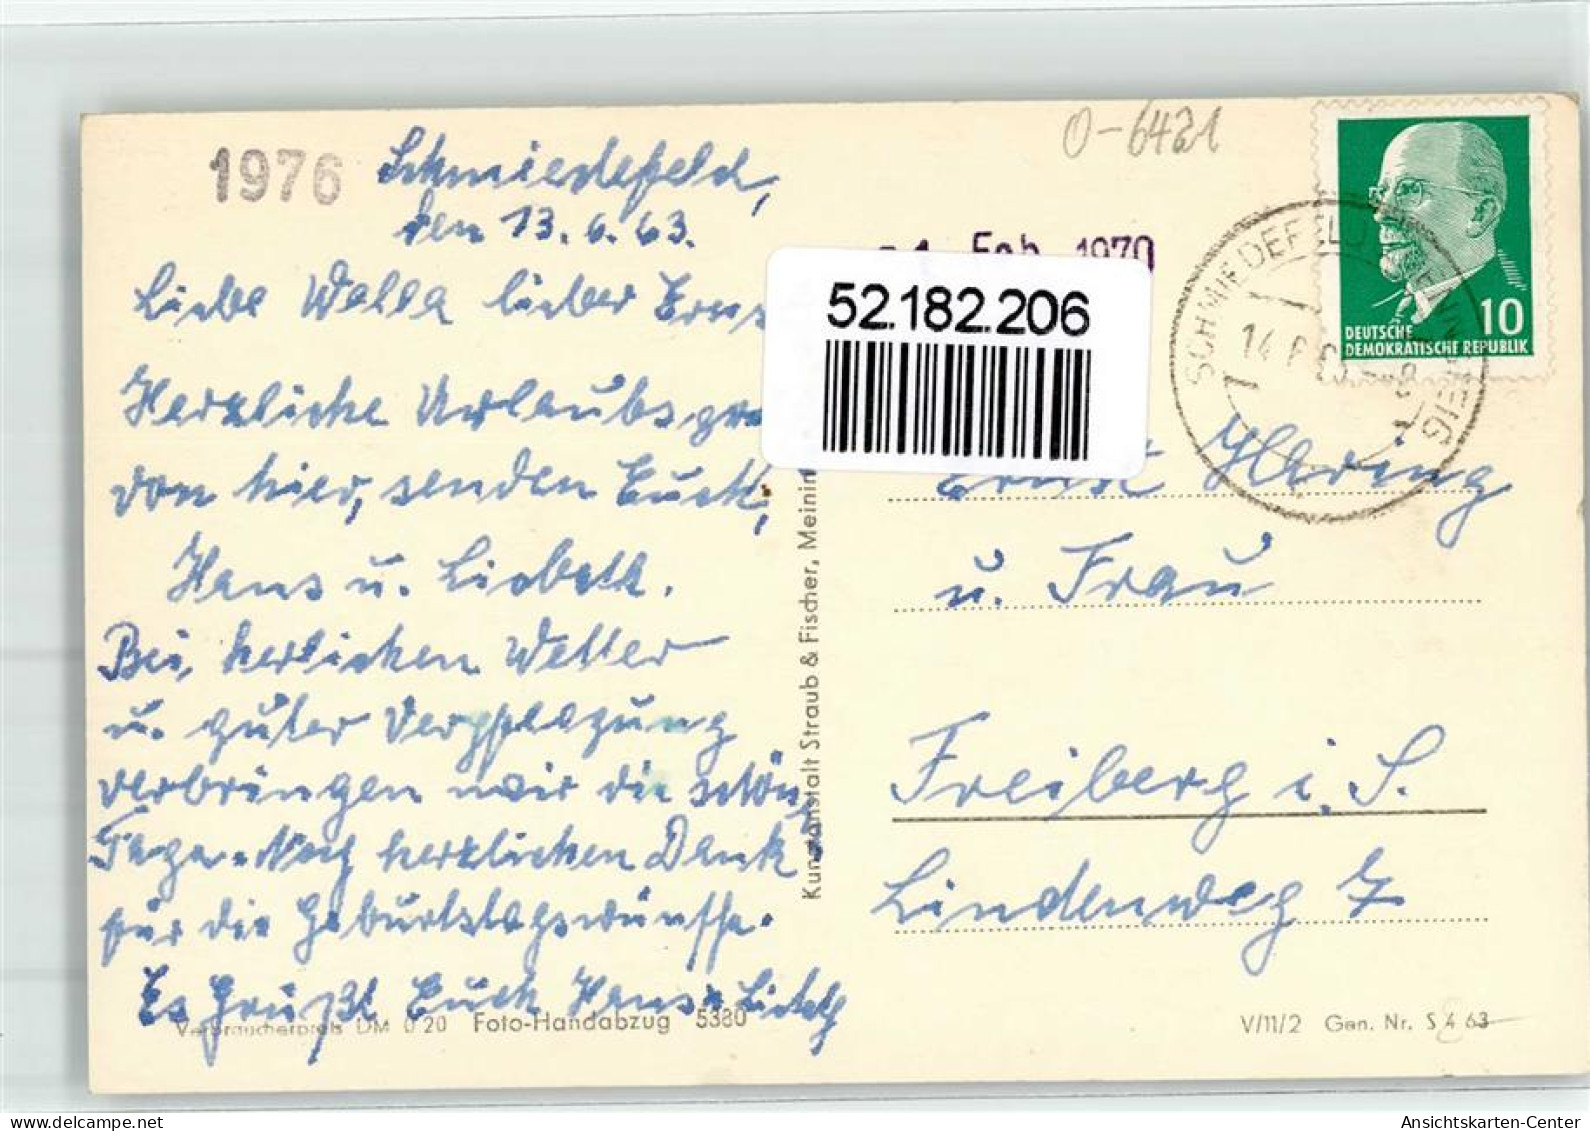 1976
Schmiedefeld,
den 13.6.63.
Liebe Wella lieber
Herzliche Urlaubsgrü
von hier, senden Euch,
Hans u. Liesbeth.
Bei herlichen Wetter
u. guter Verpflegung
verbringen wir die schön
Tage. Noch herzlichen Dank
für die Geburtstagswünsche.
Es Grüßt Euch Hans u Liesbeth
Verbraucherpreis DM 0.20 Foto-Handabzug 5380
Kunstanstalt Straub & Fischer, Meinin
O-6421
Feb. 1970
52.182.206
SCHMIEDEFELD
14 6
10
DEUTSCHE
DEMOKRATISCHE REPUBLIK
Ernst
u. Frau
Freiberg i. S.
Lindenweg 7
V/11/2 Gen. Nr. S 4 63
AnsichtsKarten-Center